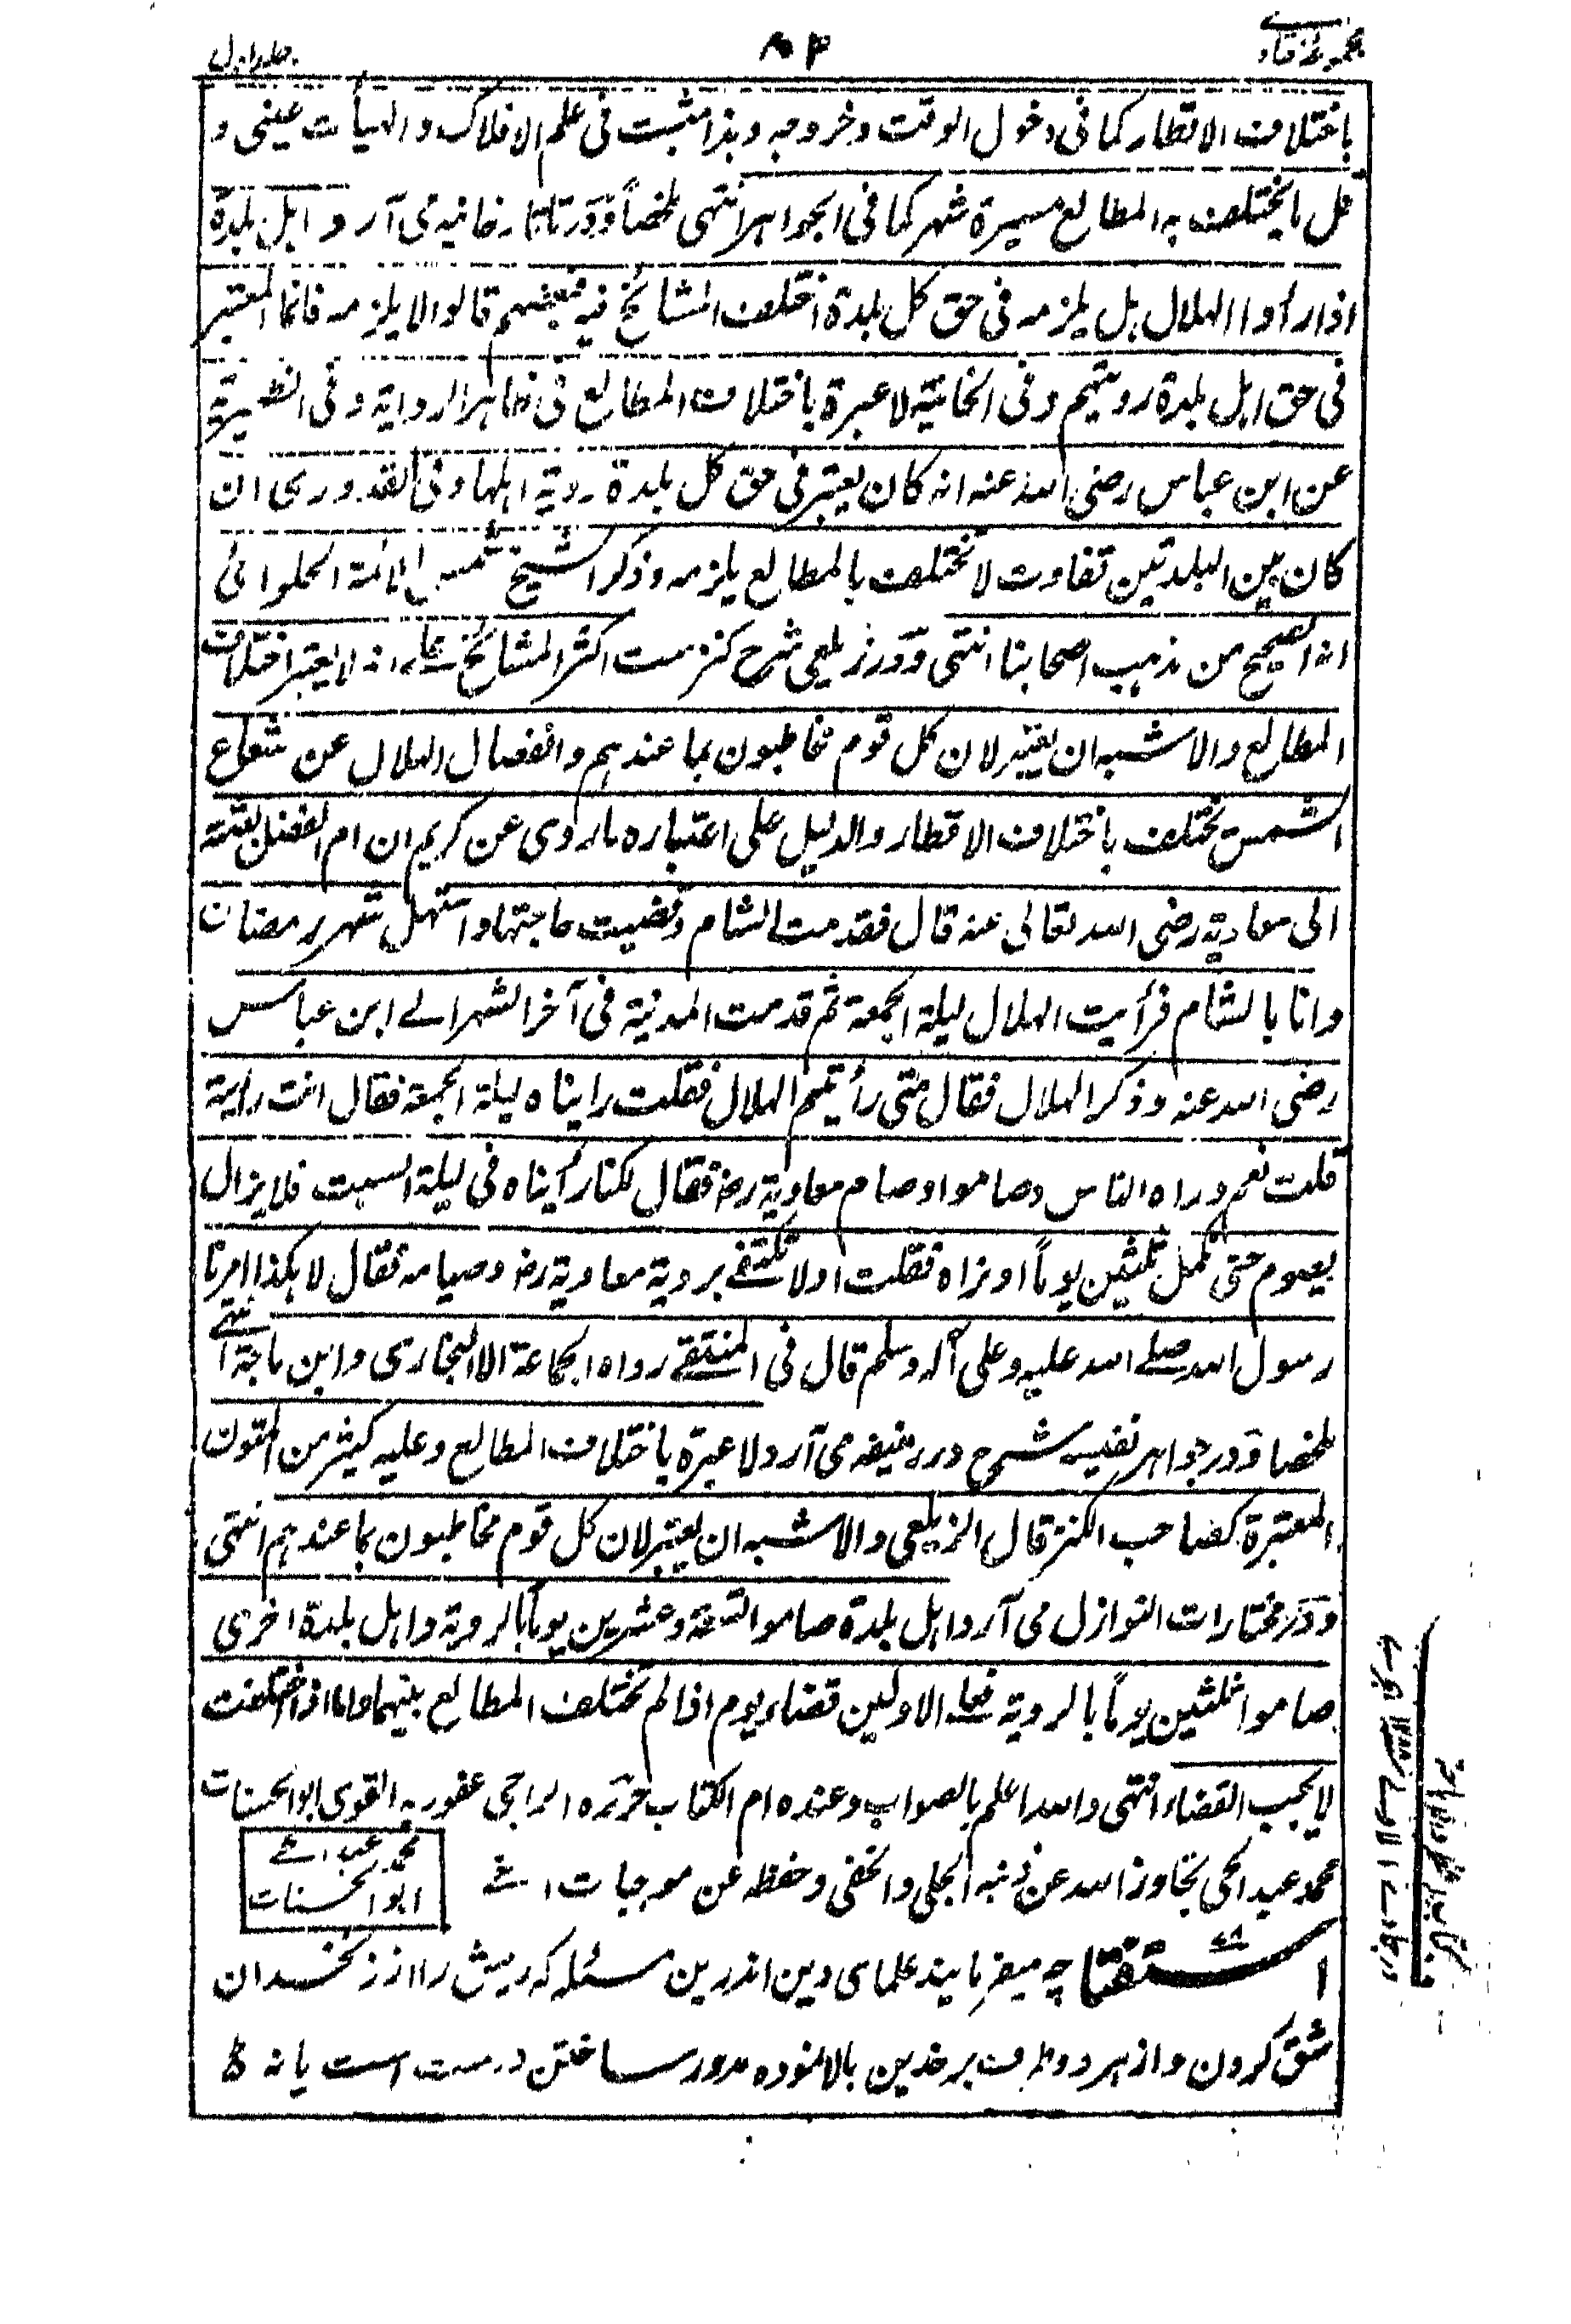 مجموعہ فتاوے
۸۴
جلد اول
باختلاف الاقطار کما فی دخول الوقت وخروجہ وہذا مثبت فی علم الافلاک والہیأت عینی و
قل ما یختلف بہ المطالع مسیرۃ شہر کما فی الجواہر انتہی ملخصاً ودر تاتار خانیہ می آرد اہل بلدۃ
اذا رأوا الہلال ہل یلزمہ فی حق کل بلدۃ اختلف المشائخ فیہ فبعضہم قالوا لا یلزمہ فانما المعتبر
فی حق اہل بلدۃ رویتہم وفی الخانیۃ لا عبرۃ باختلاف المطالع فی ظاہر الروایۃ وفی الظہیریۃ
عن ابن عباس رضی اللہ عنہ انہ کان یعتبر فی حق کل بلدۃ رویۃ اہلہا وفی القدوری ان
کان بین البلدتین تفاوت لا تختلف بالمطالع یلزمہ وذکر الشیخ شمس الائمۃ الحلوانی
انہ الصحیح من مذہب اصحابنا انتہی ودر زیلعی شرح کنز ست اکثر المشائخ علے انہ لا یعتبر اختلاف
المطالع والاشبہ ان یعتبر لان کل قوم مخاطبون بما عندہم وانفصال الہلال عن شعاع
الشمس تختلف باختلاف الاقطار والدلیل علی اعتبارہ ما روی عن کریم ان ام الفضل بعثتہ
الی معاویۃ رضی اللہ تعالی عنہ قال فقدمت الشام وقضیت حاجتہا واستہل شہر رمضان
وانا بالشام فرأیت الہلال لیلۃ الجمعۃ ثم قدمت المدینۃ فی آخر الشہر الے ابن عباس
رضی اللہ عنہ وذکر الہلال فقال متی رأیتم الہلال فقلت رایناہ لیلۃ الجمعۃ فقال انت رایتہ
قلت نعم وراہ الناس وصاموا وصام معاویۃ رض فقال لکنا رأیناہ فی لیلۃ السبت فلا یزال
یصوم حتی نکمل ثلثین یوماً او نراہ فقلت اولا تکتفے برویۃ معاویۃ رض وصیامہ فقال لا ہکذا امرنا
رسول اللہ صلے اللہ علیہ وعلی آلہ وسلم قال فی المنتقے رواہ الجماعۃ الا البخاری وابن ماجۃ انتہے
ملخصا ودر جواہر نفیسہ شرح درر منیفہ می آرد ولا عبرۃ باختلاف المطالع وعلیہ کثیر من المتون
المعتبرۃ کصاحب الکنز قال الزیلعی والاشبہ ان یعتبر لان کل قوم مخاطبون بما عندہم انتہی
ودر مختارات النوازل می آرد اہل بلدۃ صاموا تسعۃ وعشرین یوماً بالرویۃ واہل بلدۃ اخری
صاموا ثلثین یوماً بالرویۃ فعلے الاولین قضاء یوم اذا لم تختلف المطالع بینہما واما اذا اختلفت
لا یجب القضاء انتہی واللہ اعلم بالصواب وعندہ ام الکتاب حررہ الراجی عفو ربہ القوی ابو الحسنات
محمد عبد الحی تجاوز اللہ عن ذنبہ الجلی والخفی وحفظہ عن موجبات الغے
محمد عبد الحے
ابو الحسنات
استفتا چہ میفرمایند علمای دین اندرین مسئلہ کہ ریش را از زنخدان
شق کردن و از ہر دو طرف بر خدین بالا نمودہ مدور ساختن درست است یا نہ